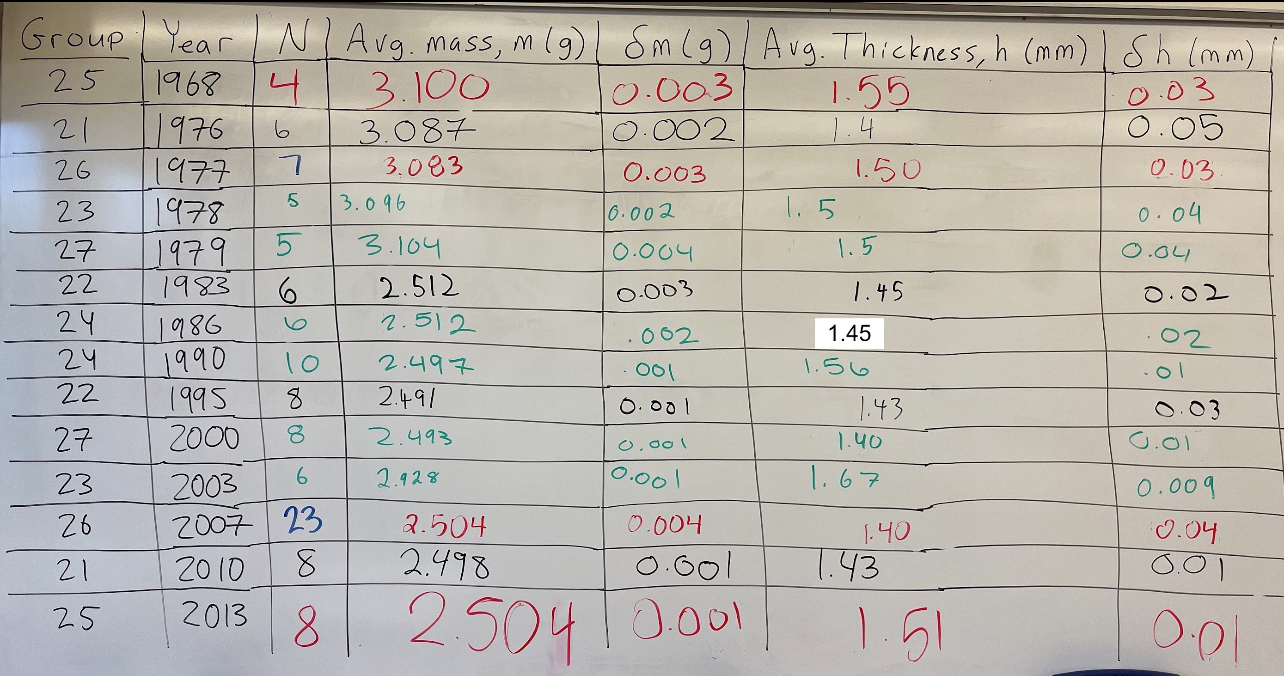 Group Year N Avg. mass, m (g) δm (g) Avg. Thickness, h (mm) δh (mm)
25 1968 4 3.100 0.003 1.55 0.03
21 1976 6 3.087 0.002 1.4 0.05
26 1977 7 3.083 0.003 1.50 0.03
23 1978 5 3.096 0.002 1.5 0.04
27 1979 5 3.104 0.004 1.5 0.04
22 1983 6 2.512 0.003 1.45 0.02
24 1986 6 2.512 .002 1.45 .02
24 1990 10 2.497 .001 1.56 .01
22 1995 8 2.491 0.001 1.43 0.03
27 2000 8 2.493 0.001 1.40 0.01
23 2003 6 2.928 0.001 1.67 0.009
26 2007 23 2.504 0.004 1.40 0.04
21 2010 8 2.498 0.001 1.43 0.01
25 2013 8 2.504 0.001 1.51 0.01